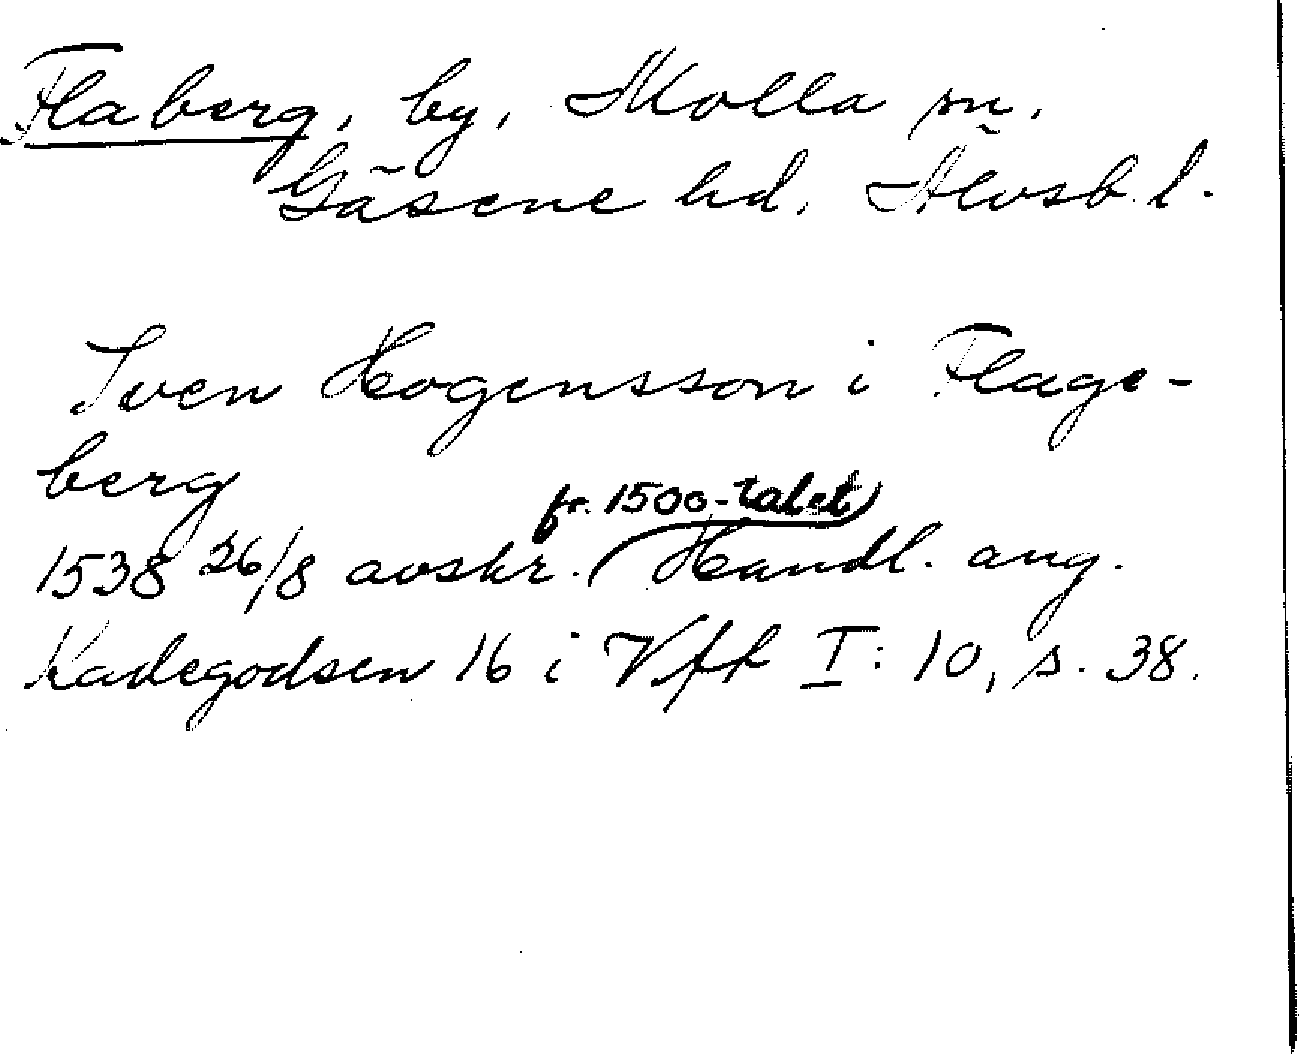 Flaberg, by, Molla sn.
Gäsene hd. Älvsb. l.
Sven Hogensson i Flage-
berg
fr. 1500-talet
1538 26/8 avskr. Handl. ang.
Kadegodsen 16 i Vff I: 10, s. 38.